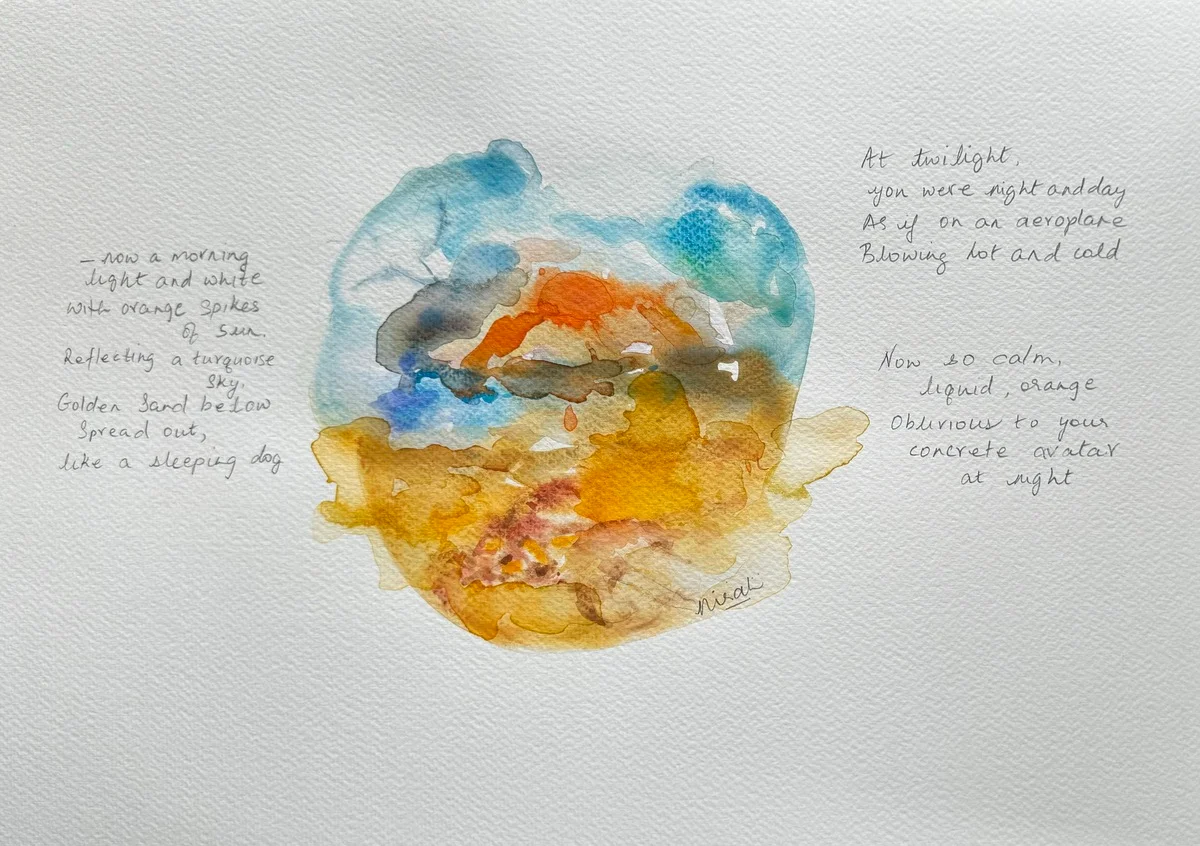 — now a morning
light and white
with orange spikes
of sun.
Reflecting a turquoise
sky.
Golden Sand below
Spread out,
like a sleeping dog
At twilight,
you were night and day
As if on an aeroplane
Blowing hot and cold
Now so calm,
liquid, orange
Oblivious to your
concrete avatar
at night